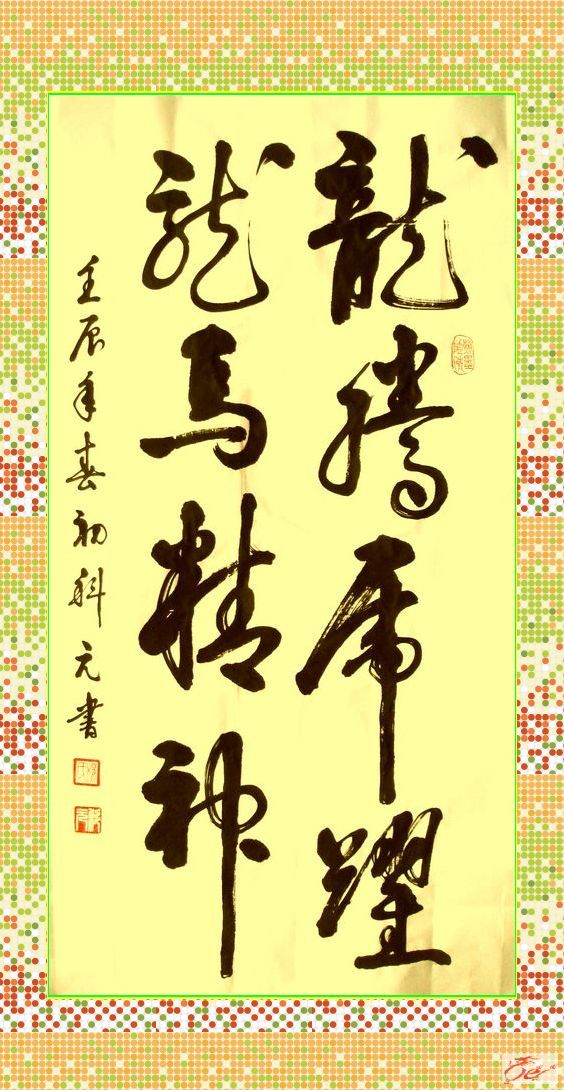 龍騰虎躍
龍馬精神
壬辰年春初科元書